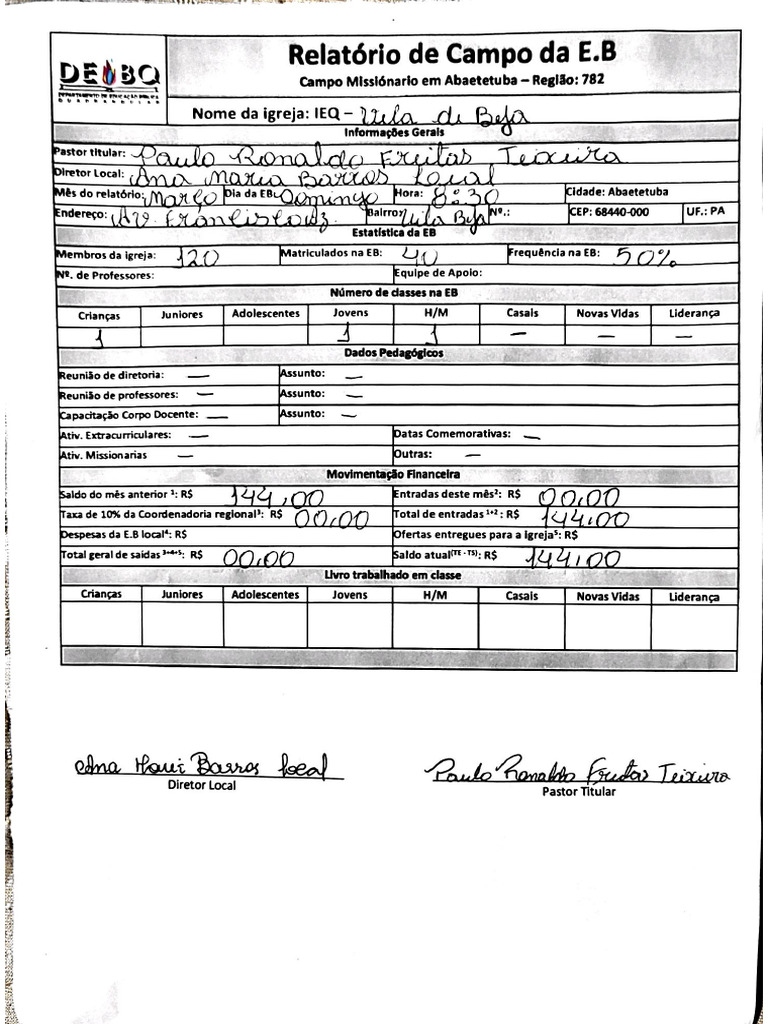 DEBQ
DEPARTAMENTO DE EDUCAÇÃO BÍBLICA
QUADRANGULAR
Relatório de Campo da E.B
Campo Missiónario em Abaetetuba – Região: 782
Nome da igreja: IEQ – Vila de Beja
Informações Gerais
Pastor titular: Paulo Ronaldo Freitas Teixeira
Diretor Local: Ana Maria Barros Leal
Mês do relatório: Março Dia da EB: Domingo Hora: 8:30 Cidade: Abaetetuba
Endereço: Av. Bairro: Vila Beja Nº.: CEP: 68440-000 UF.: PA
Estatística da EB
Membros da igreja: 120 Matriculados na EB: 40 Frequência na EB: 50%
Nº. de Professores: Equipe de Apoio:
Número de classes na EB
Crianças Juniores Adolescentes Jovens H/M Casais Novas Vidas Liderança
1 1 1 — — —
Dados Pedagógicos
Reunião de diretoria: — Assunto: —
Reunião de professores: — Assunto: —
Capacitação Corpo Docente: — Assunto: —
Ativ. Extracurriculares: — Datas Comemorativas: —
Ativ. Missionarias — Outras: —
Movimentação Financeira
Saldo do mês anterior ¹: R$ 144,00 Entradas deste mês²: R$ 00,00
Taxa de 10% da Coordenadoria regional³: R$ 00,00 Total de entradas ¹⁺² : R$ 144,00
Despesas da E.B local⁴: R$ Ofertas entregues para a Igreja⁵: R$
Total geral de saídas ³⁺⁴⁺⁵: R$ 00,00 Saldo atual(TE - TS): R$ 144,00
Livro trabalhado em classe
Crianças Juniores Adolescentes Jovens H/M Casais Novas Vidas Liderança
Ana Barros Leal
Diretor Local
Paulo Ronaldo Freitas Teixeira
Pastor Titular